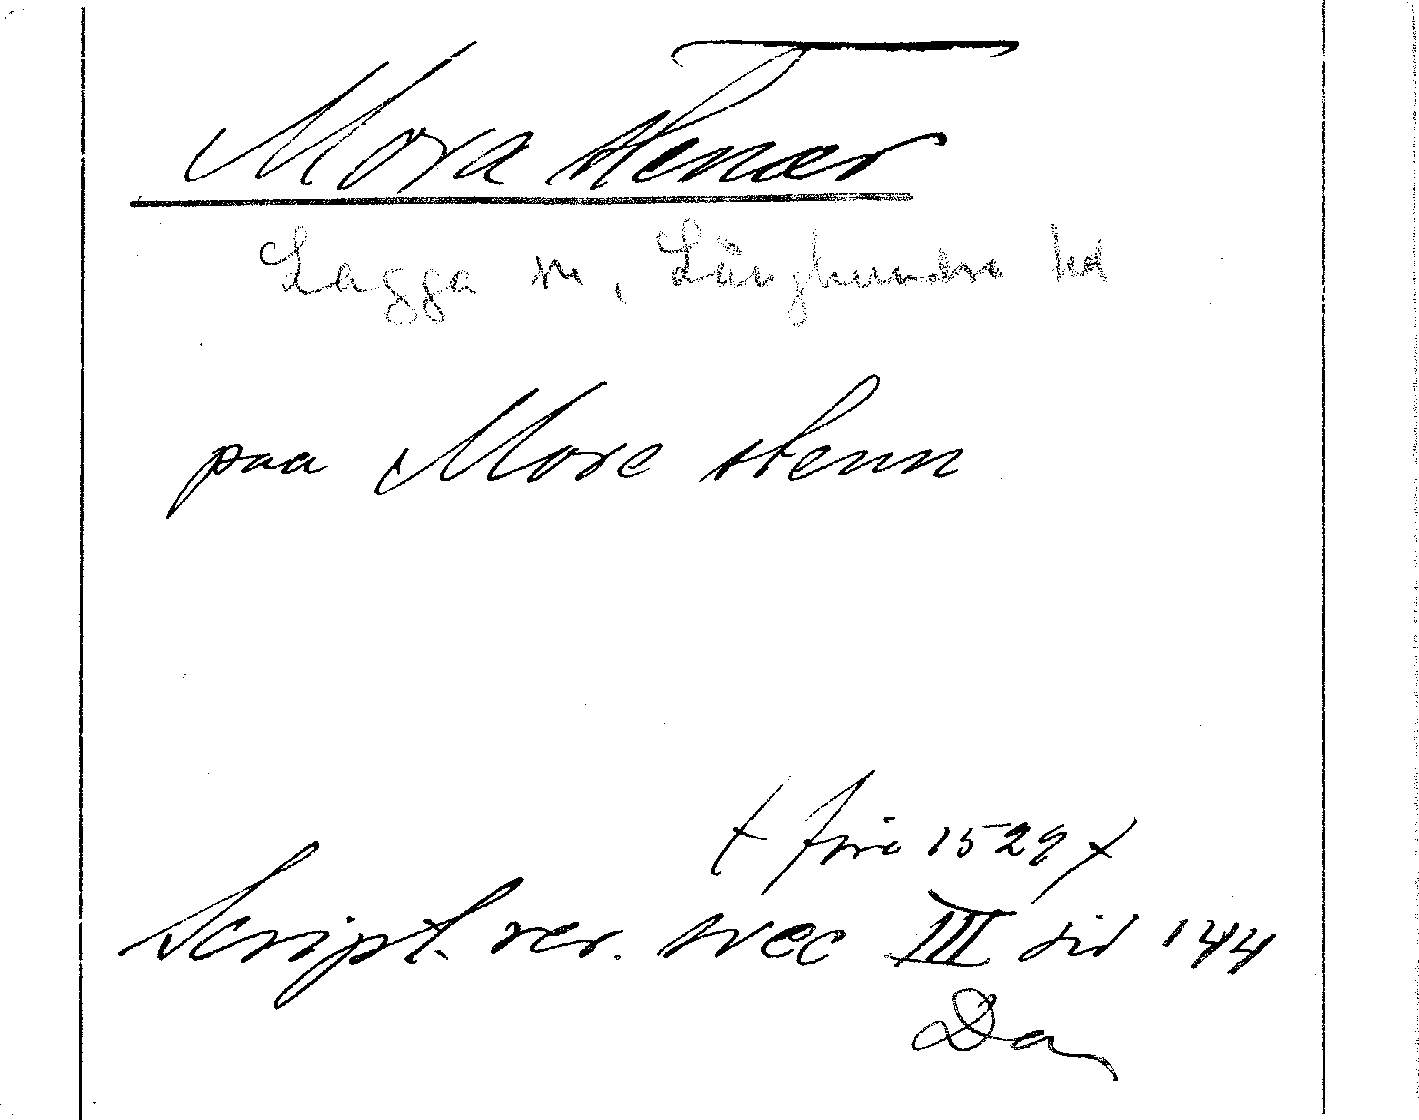 Mora stenar
Lagga sn, Långhundra hd
paa More stenn
+ före 1529 +
Script. rer. svec III sid 144
Da